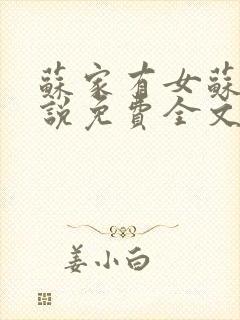 蘇家有女蘇
說免費全文
姜小白